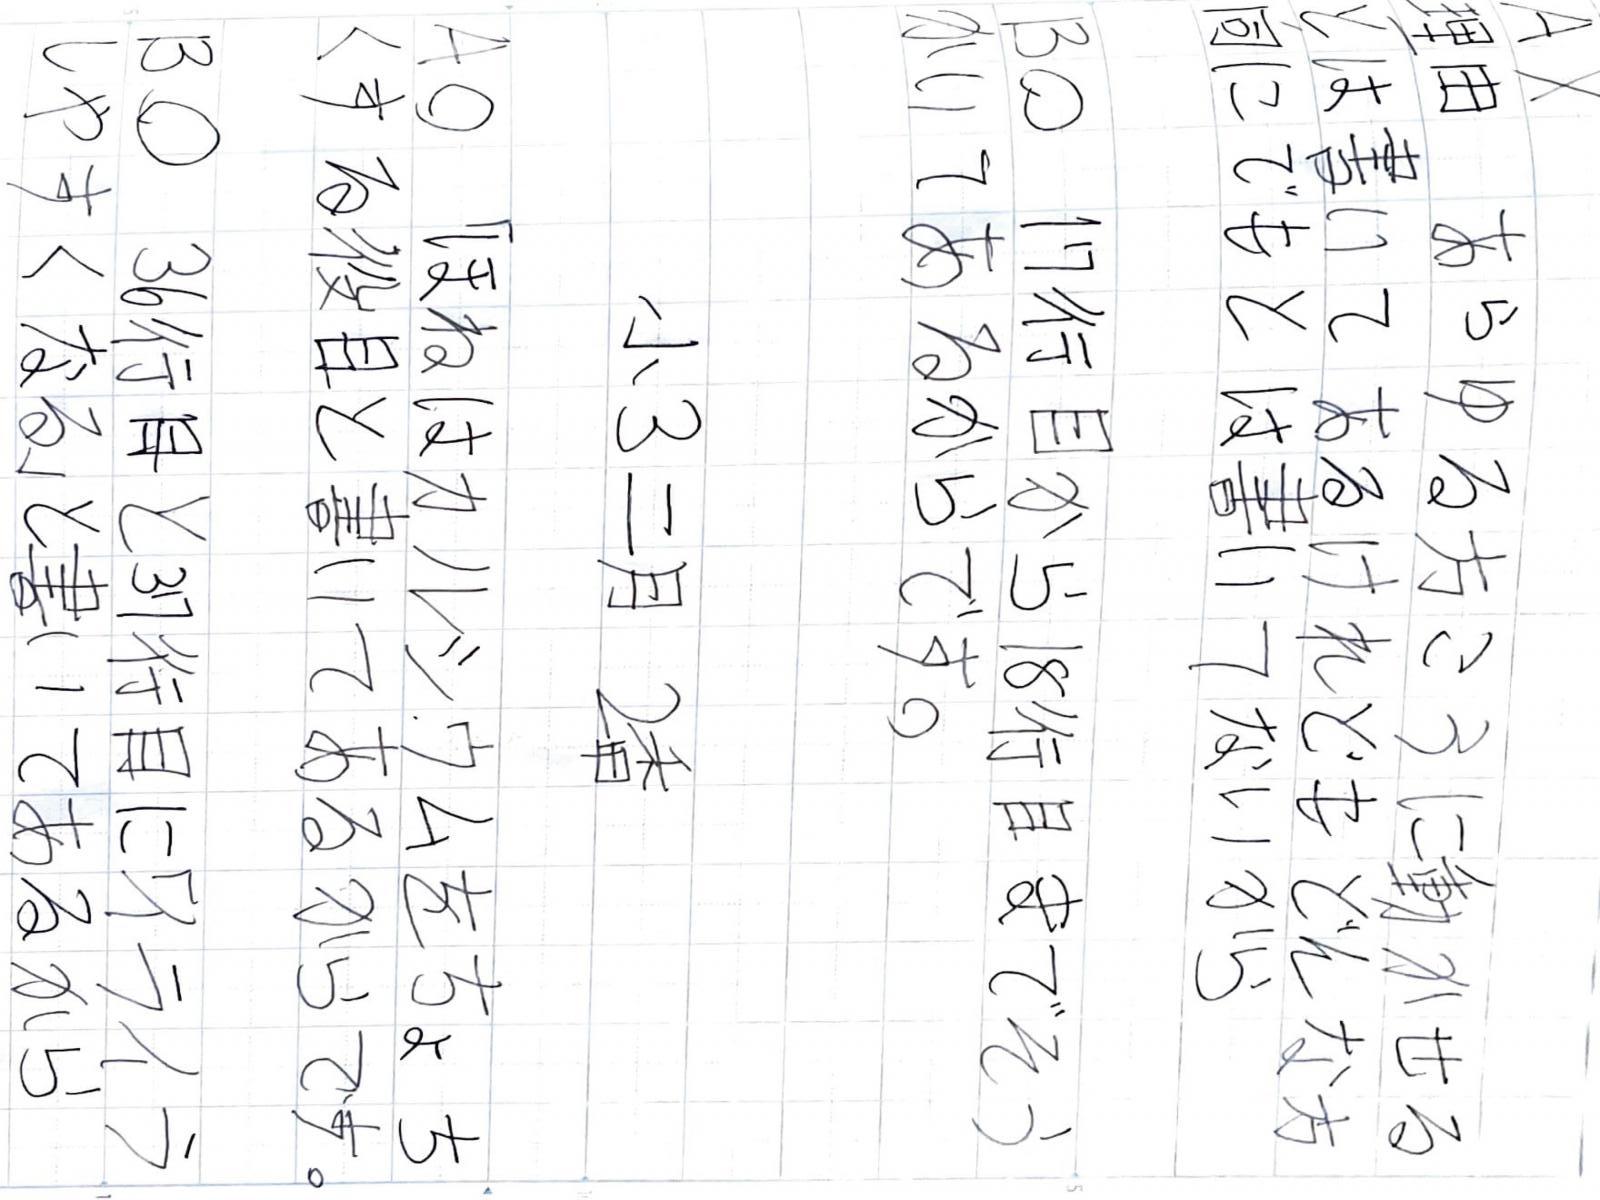 A×
理由 あらゆる方こうに動かせる
とは書いてあるけれどもどんな方
向にでもとは書いてないから
B○ 17行目から18行目までそう
かいてあるからです。
小3二月 2番
A○ 「ほねはカルシウムをちょち
くする役目と書いてあるからです。
B○ 36行目と37行目に「イライラ
しやすくなる」と書いてあるから